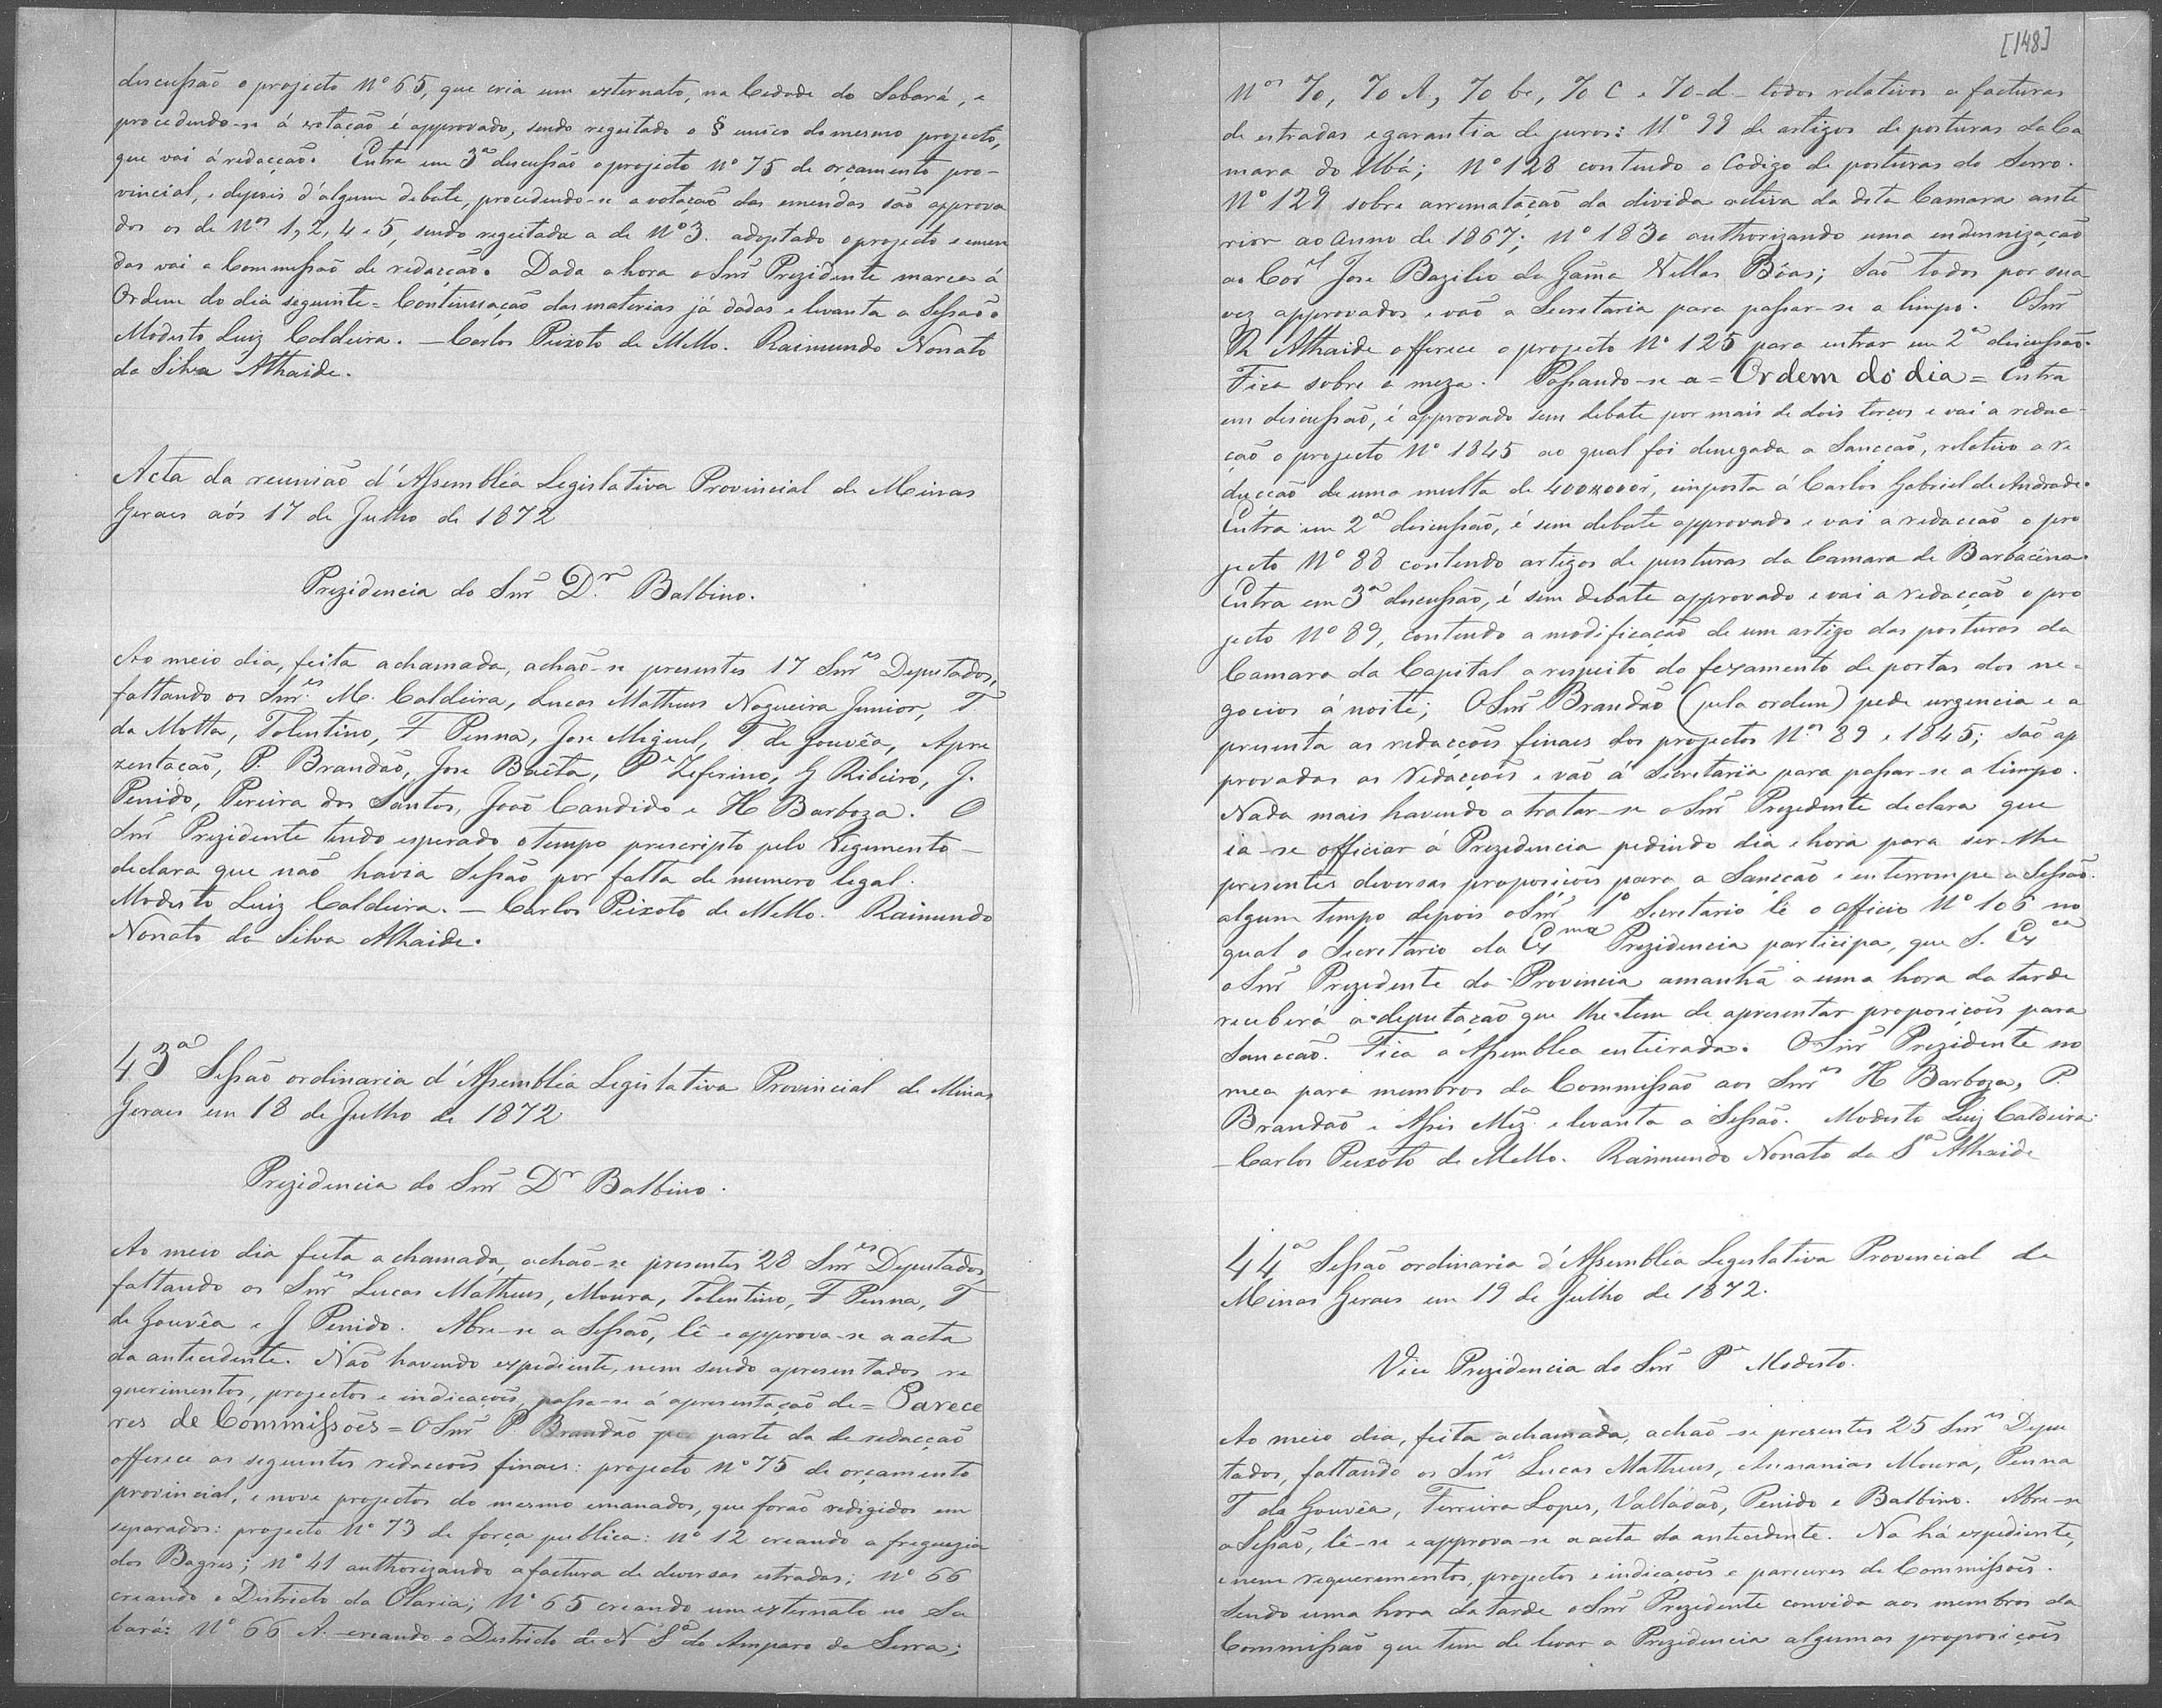 discussão o projecto Nº 65, que cria um externato, na Cidade do Sabará, e
procedendo-se á votação é approvado, sendo regeitado o § unico do mesmo projecto,
que vai á redacção. Entra em 3ª discussão o projecto Nº 75 de orçamento pro-
vincial, e depois d'algum debate, procedendo-se a votação das emendas são approva
dos os de Nos 1, 2, 4 e 5, sendo regeitada a de Nº 3. adoptado o projecto e emen
das vai a Commissão de redacção. Dada a hora o Snr Prezidente marca á
Ordem do dia seguinte = Continuação das materias já dadas e levanta a Sessão.
Modesto Luiz Caldeira. — Carlos Peixoto de Mello. Raimundo Nonato
da Silva Athaide.
Acta da reunião d'Assembléa Legislativa Provincial de Minas
Geraes aós 17 de Julho de 1872
Prezidencia do Snr Dr. Balbino.
Ao meio dia, feita a chamada, achão-se presentes 17 Snres Deputados,
faltando os Snres M. Caldeira, Lucas Matheus Nogueira Junior, T
da Motta, Tolentino, F Penna, Jose Miguel, T de Gouvêa, Apre
zentação, P. Brandão, Jose Baêta, Pe Zeferino, G Ribeiro, J.
Penido, Pereira dos Santos, João Candido e H Barboza. O
Snr Prezidente tendo esperado o tempo prescripto pelo Regimento —
declara que não havia Sessão por falta de numero legal.
Modesto Luiz Caldeira. — Carlos Peixoto de Mello. Raimundo
Nonato da Silva Athaide.
43ª Sessão ordinaria d'Assembléa Legislativa Provincial de Minas
Geraes em 18 de Julho de 1872
Prezidencia do Snr Dr Balbino.
Ao meio dia feita a chamada, achão-se presentes 28 Snres Deputados,
faltando os Snres Lucas Matheus, Moura, Tolentino, F Penna, T
de Gouvêa e J Penido. Abre-se a Sessão, lê e approva-se a acta
da antecedente. Não havendo expediente, nem sendo apresentados re
querimentos, projectos e indicações, passa-se á apresentação de = Parece
res de Commissões = O Snr P. Brandão por parte da de redacção
offerece as seguintes redacções finaes: projecto Nº 75 de orçamento
provincial, e nove projectos do mesmo emanados, que forão redigidos em
separados: projecto Nº 73 de força publica: nº 12 creando a freguezia
dos Bagres; nº 41 authorizando a factura de diversas estradas; nº 66
creando o Districto da Olaria; Nº 65 creando um externato no Sa
bará: Nº 66 A. creando o Districto de N Sª do Amparo da Serra;
[148]
Nos 70, 70 A, 70 b, 70 C e 70-d- todos relativos a facturas
de estradas e garantia de juros: Nº 99 de artigos de posturas da Ca
mara do Ubá; Nº 128 contendo o Codigo de posturas do Serro.
Nº 129 sobre arrematação da divida activa da dita Camara ante
rior ao anno de 1867; Nº 183 authorizando uma endemnização
ao Corel Jose Bazilio da Gama Villas Bôas; São todos por sua
vez approvados e vão a Secretaria para passar-se a limpo. O Snr
R Athaide offerece o projecto Nº 125 para entrar em 2ª discussão.
Fica sobre a meza. Passando-se a = Ordem do dia = Entra
em discussão, é approvado sem debate por mais de dois terços e vai a redac-
ção o projecto Nº 1845 ao qual foi denegada a Sancção, relativo a re
ducção de uma multa de 400#000r, imposta á Carlos Gabriel de Andrade.
Entra em 2ª discussão, é sem debate approvado e vai a redacção o pro
jecto Nº 88 contendo artigos de posturas da Camara de Barbacena.
Entra em 3ª discussão, é sem debate approvado e vai a redacção o pro
jecto Nº 89, contendo a modificação de um artigo das posturas da
Camara da Capital a respeito do fexamento de portas dos ne-
gocios á noite; O Snr Brandão (pela ordem) pede urgencia e a
presenta as redacções finaes dos projectos Nos 89 e 1845; são ap
provadas as redacções e vão á Secretaria para passar-se a limpo.
Nada mais havendo a tratar-se o Snr Prezidente declara que
ia-se officiar á Prezidencia pedindo dia e hora para ser-lhe
presentes diversas proposições para a Sancção e interrompe a Sessão.
algum tempo depois o Snr 1º Secretario lê o officio Nº 106 no
qual o Secretario da Exma Prezidencia participa, que S. Exca
o Snr Prezidente da Provincia amanhã a uma hora da tarde
receberá a deputação que lhe tem de apresentar proposições para
Sancção. Fica a Assemblea enteirada. O Snr Prezidente no
mea para membros da Commissão aos Snres H Barboza, P.
Brandão e Assis Miz e levanta a Sessão. Modesto Luiz Caldeira.
— Carlos Peixoto de Mello. Raimundo Nonato da Sª Athaide
44ª Sessão ordinaria d'Assembléa Legislativa Provincial de
Minas Geraes em 19 de Julho de 1872.
Vice Prezidencia do Snr Pe Modesto.
Ao meio dia, feita a chamada, achão-se presentes 25 Snres Depu
tados, faltando os Snres Lucas Matheus, Ananias Moura, Penna
T de Gouvêa, Ferreira Lopes, Valladão, Penido e Balbino. Abre-se
a Sessão, lê-se e approva-se a acta da antecedente. Na há expediente,
e nem requerimentos, projectos e indicações e pareceres de Commissões.
Sendo uma hora da tarde o Snr Prezidente convida aos membros da
Commissão que tem de levar a Prezidencia algumas proposições